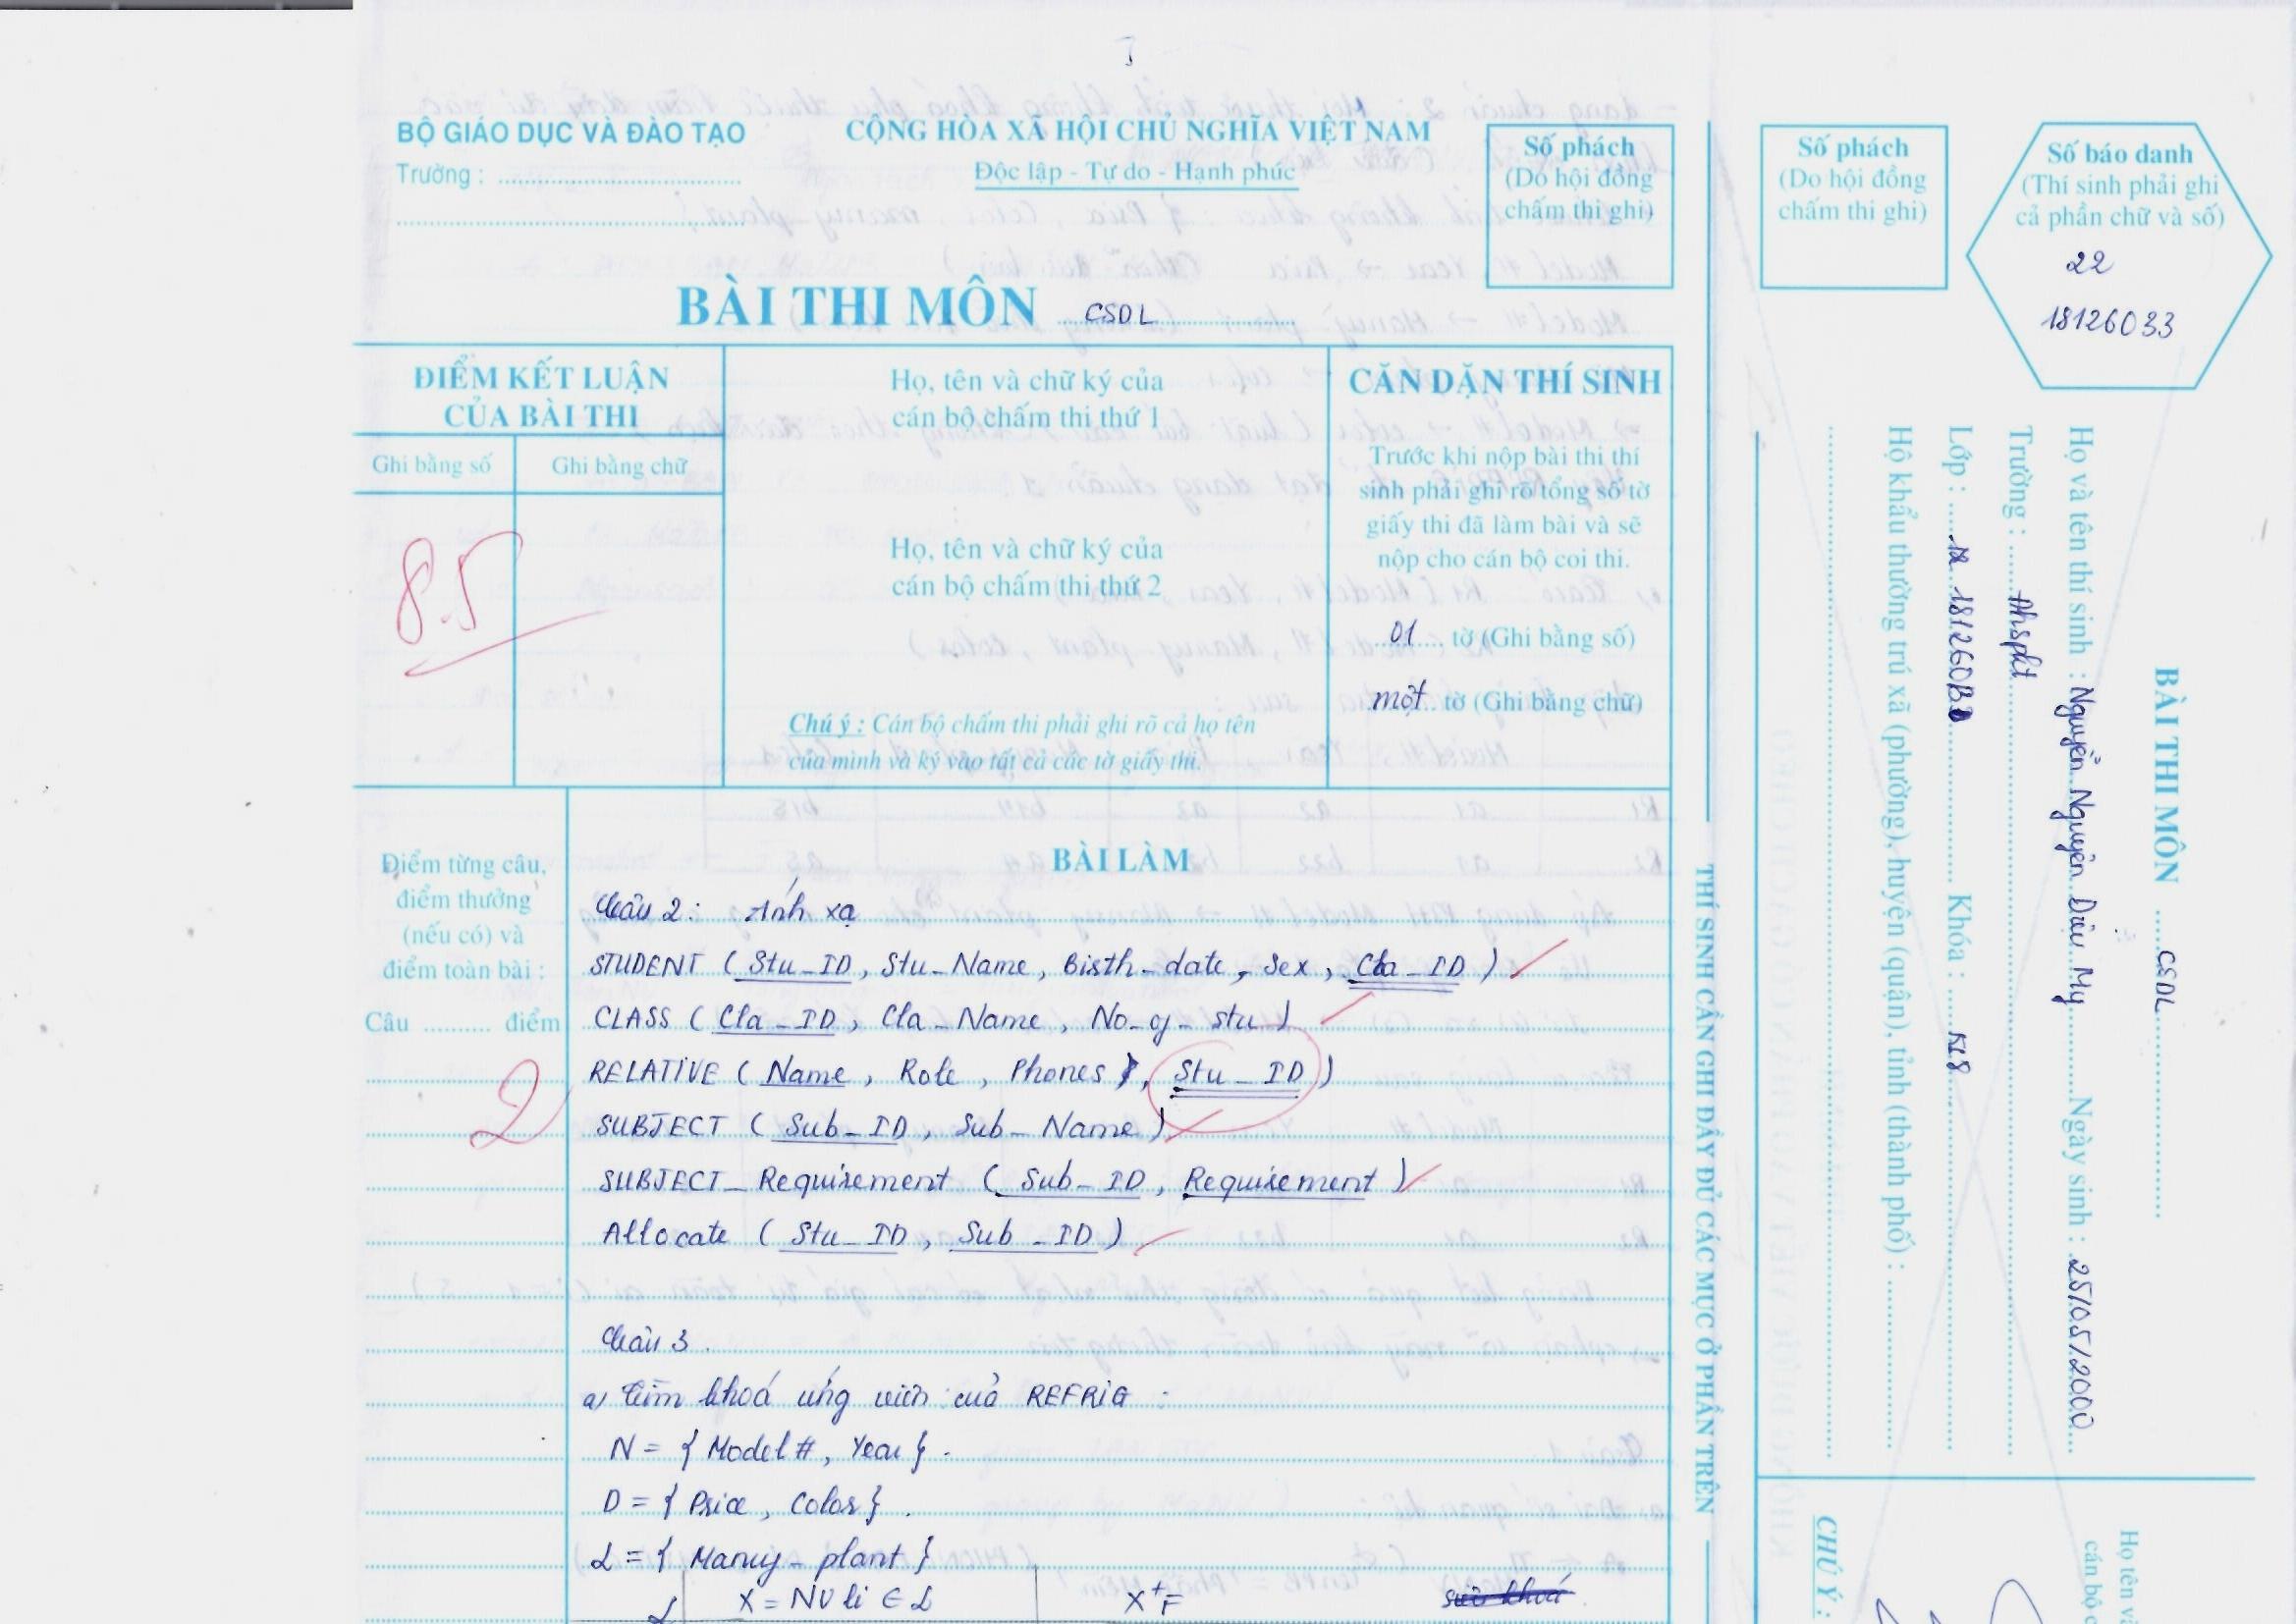 BỘ GIÁO DỤC VÀ ĐÀO TẠO
Trường : ..........
CỘNG HÒA XÃ HỘI CHỦ NGHĨA VIỆT NAM
Độc lập - Tự do - Hạnh phúc
Số phách
(Do hội đồng
chấm thi ghi)
BÀI THI MÔN CSDL
ĐIỂM KẾT LUẬN
CỦA BÀI THI
Ghi bằng số
Ghi bằng chữ
8.5
Họ, tên và chữ ký của
cán bộ chấm thi thứ 1
Họ, tên và chữ ký của
cán bộ chấm thi thứ 2
Chú ý : Cán bộ chấm thi phải ghi rõ cả họ tên
của mình và ký vào tất cả các tờ giấy thi.
CĂN DẶN THÍ SINH
Trước khi nộp bài thi thí
sinh phải ghi rõ tổng số tờ
giấy thi đã làm bài và sẽ
nộp cho cán bộ coi thi.
01 tờ (Ghi bằng số)
một tờ (Ghi bằng chữ)
Điểm từng câu,
điểm thưởng
(nếu có) và
điểm toàn bài :
Câu .......... điểm
2
BÀI LÀM
Câu 2: Ánh xạ
STUDENT ( Stu_ID, Stu_Name, Birth_date, Sex, Cla_ID )
CLASS ( Cla_ID, Cla_Name, No_of_stu )
RELATIVE ( Name, Role, Phones, Stu_ID )
SUBJECT ( Sub_ID, Sub_Name )
SUBJECT_Requirement ( Sub_ID, Requirement )
Allocate ( Stu_ID, Sub_ID )
Câu 3.
a) Tìm khoá ứng viên của REFRIG :
N = { Model#, Year } .
D = { Price, Color } .
L = { Manuf_plant }
L X = N ∪ li ∈ L X⁺F
THÍ SINH CẦN GHI ĐẦY ĐỦ CÁC MỤC Ở PHẦN TRÊN
Số phách
(Do hội đồng
chấm thi ghi)
Số báo danh
(Thí sinh phải ghi
cả phần chữ và số)
22
18126033
BÀI THI MÔN CSDL
Họ và tên thí sinh : Nguyễn Nguyên Diệu My Ngày sinh : 25/05/2000
Trường : ĐHSPKT
Lớp : 181260B Khóa : K18
Hộ khẩu thường trú xã (phường), huyện (quận), tỉnh (thành phố) :
CHÚ Ý :
Họ tên và
cán bộ c